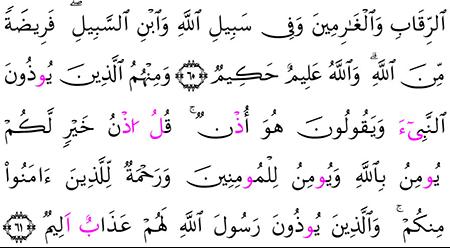 الرِّقَابِ وَالْغَٰرِمِينَ وَفِي سَبِيلِ اللَّهِ وَابْنِ السَّبِيلِۖ فَرِيضَةً
مِّنَ اللَّهِۗ وَاللَّهُ عَلِيمٌ حَكِيمٌ ٦٠ وَمِنْهُمُ الَّذِينَ يُوذُونَ
النَّبِىٓءَ وَيَقُولُونَ هُوَ أُذْنٌۚ قُلُ اذْنُ خَيْرٍ لَّكُمْ
يُومِنُ بِاللَّهِ وَيُومِنُ لِلْمُومِنِينَ وَرَحْمَةٌ لِّلَّذِينَ ءَامَنُواْ
مِنكُمْۚ وَالَّذِينَ يُوذُونَ رَسُولَ اللَّهِ لَهُمْ عَذَابٌ اَلِيمٌ ٦١